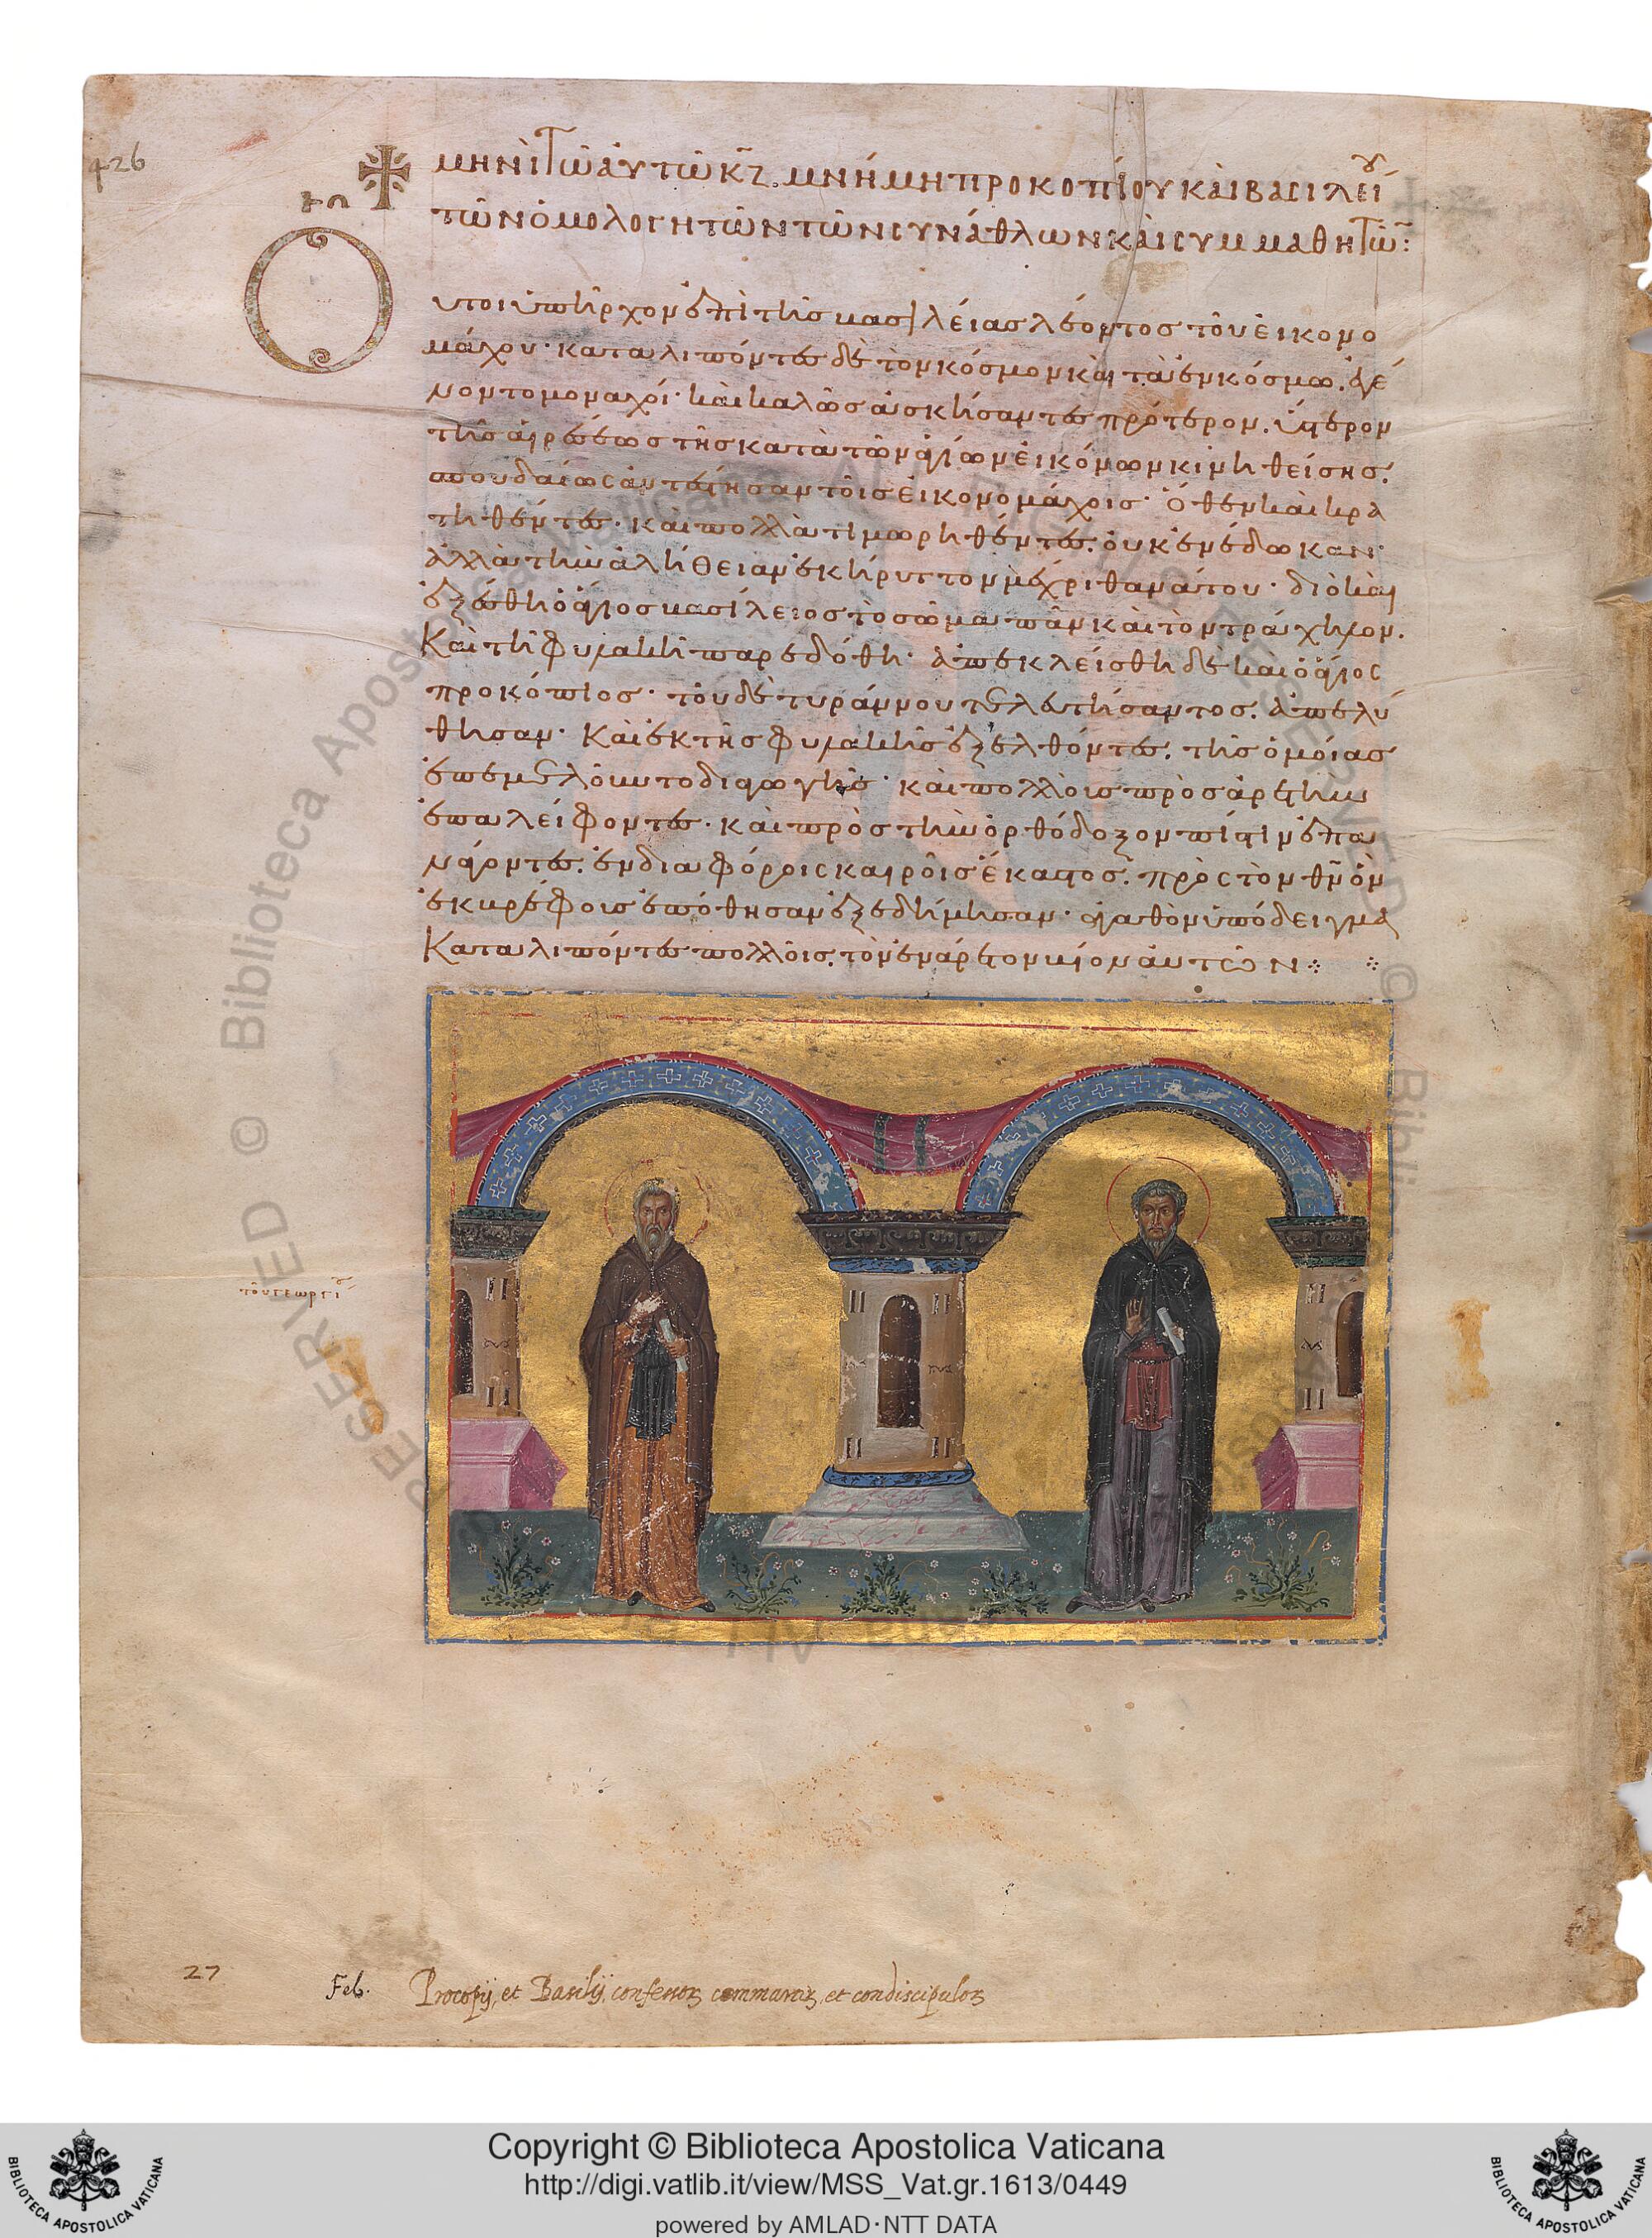 426
ΜΗΝῚ ΤΩ ΑΥΤΩ ΚΖ. ΜΝΉΜΗ ΠΡΟΚΟΠΊΟΥ ΚΑῚ ΒΑΣΙΛΕΊΟΥ
ΤΩΝ ὉΜΟΛΟΓΗΤΩΝ ΤΩΝ ΣΥΝΆΘΛΩΝ ΚΑῚ ΣΥΜΜΑΘΗΤΩ:
Οὗτοι ὑπῆρχον ἐπὶ τῆς βασιλείας λέοντος τοῦ εἰκονο
μάχου· καταλιπόντες δὲ τὸν κόσμον καὶ τὰ ἐν κόσμω. ἐγέ
νοντο μοναχοί· καὶ καλῶς ἀσκήσαντες πρότερον. ὕστερον
τῆς αἱρέσεως τῆς κατὰ τῶν ἁγίων εἰκόνων κινηθείσης.
σπουδαίως ἀντέστησαν τοῖς εἰκονομάχοις· ὅθεν καὶ κρα
τηθέντες· καὶ πολλὰ τιμωρηθέντες. οὐκ ἐνέδωκαν·
ἀλλὰ τὴν ἀλήθειαν ἐκήρυττον μέχρι θανάτου· διὸ καὶ
ἐξέσθη ὁ ἅγιος βασίλειος τὸ σῶμα πᾶν καὶ τὸν τράχηλον.
Καὶ τῆ φυλακῆ παρεδόθη· ἀπεκλείσθη δὲ καὶ ὁ ἅγιος
προκόπιος· τοῦ δὲ τυράννου τελευτήσαντος. ἀπελύ
θησαν· Καὶ ἐκ τῆς φυλακῆς ἐξελθόντες. τῆς ὁμοίας
ἐπεμελοῦντο διαγωγῆς· καὶ πολλοὺς πρὸς ἀρετὴν
ἐπαλείφοντες· καὶ πρὸς τὴν ὀρθόδοξον πίστιν ἐπα
νάγοντες. ἐν διαφόροις καιροῖς ἕκαστος. πρὸς τὸν θν ὃν
ἐκ βρέφους ἐπόθησαν ἐξεδήμησαν· ἀγαθὸν ὑπόδειγμα
Καταλιπόντες πολλοῖς. τὸν ἐνάρετον βίον αὐτῶν
27
Feb. Procopij, et Basilij, confessor, commartir, et condiscipulor
RESERVED © Biblioteca Apostolica Vaticana
Copyright © Biblioteca Apostolica Vaticana
http://digi.vatlib.it/view/MSS_Vat.gr.1613/0449
powered by AMLAD·NTT DATA
BIBLIOTECA APOSTOLICA VATICANA
BIBLIOTECA APOSTOLICA VATICANA